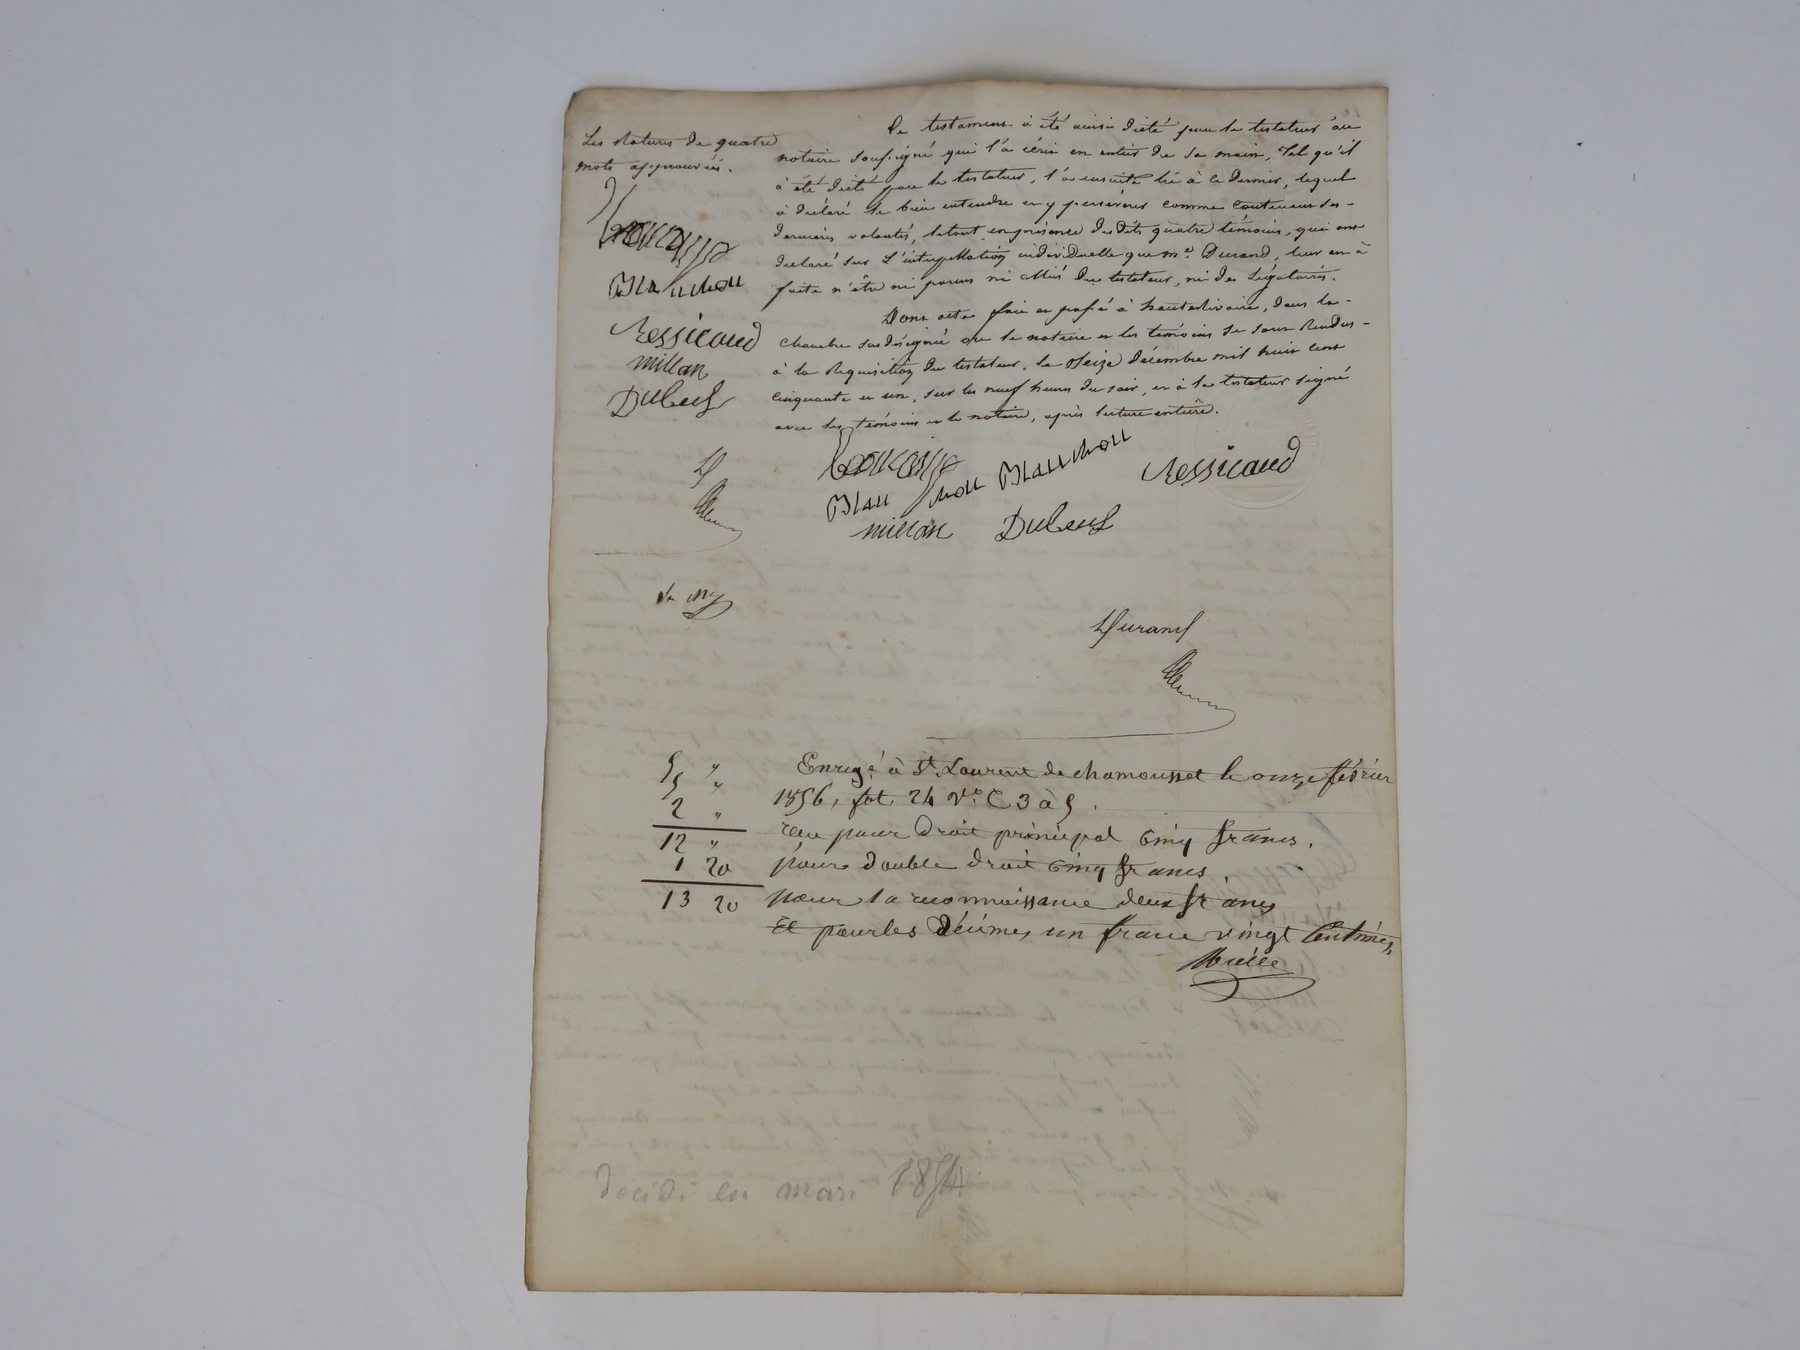 Les ratures de quatre
mots approuvées.
Blanchon
Ressicaud
millan
Dubeuf
D
Ce testament a été ainsi dicté par le testateur au
notaire soussigné qui l'a écrit en entier de sa main, tel qu'il
a été dicté par le testateur, l'a ensuite lu à ce dernier, lequel
a déclaré le bien entendre et y persévérer comme contenant ses
dernières volontés, le tout en présence desdits quatre témoins, qui ont
déclaré sur l'interpellation individuelle que me. Durand, leur en a
faite n'être ni parens ni alliés du testateur, ni des légataires.
Dont acte fait et passé à hauterivoire, dans la
chambre susdésignée où le notaire et les témoins se sont rendus
à la réquisition du testateur, le seize décembre mil huit cent
cinquante et un, sur les neuf heures du soir, et a le testateur signé
avec les témoins et le notaire, après lecture entière.
Blanchon Ressicaud
Blanchon
millan Dubeuf
Durand
5 "
5 "
2 "
12 "
1 20
13 20
Enregé à St Laurent de chamousset le onze février
1856, fol. 24 Vo. C 3 à 5.
reçu pour droit principal cinq francs.
pour double droit cinq francs.
pour la reconnaissance deux francs
Et pour les décimes un franc vingt Centimes,
décédé en mars 1854